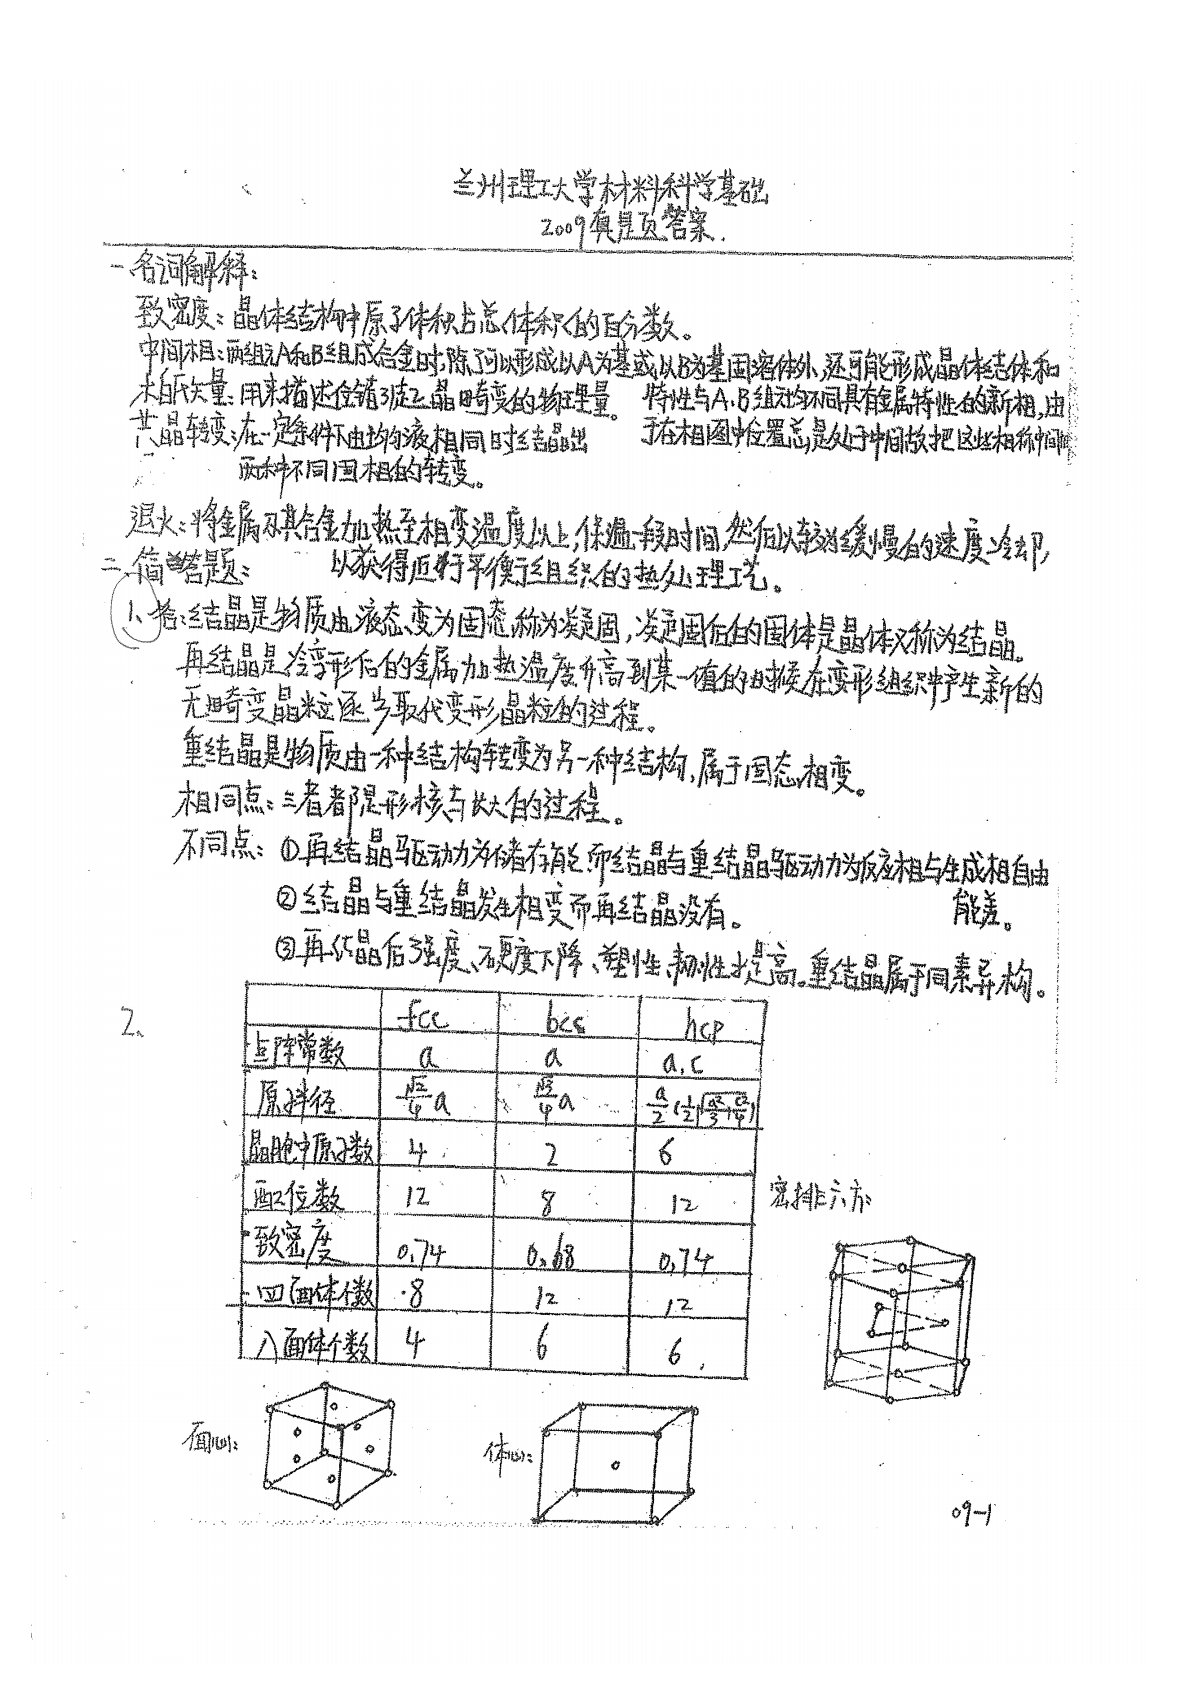 兰州理工大学材料科学基础
2009真题答案.
一、名词解释:
致密度:晶体结构中原子体积占总体积的百分数。
中间相:两组元A和B组成合金时,除了可以形成以A为基或以B为基固溶体外,还可能形成晶体结体和
特性与A、B组元均不同具有金属特性的新相,由
于在相图中位置总是处于中间故把这些相称中间相
柏氏矢量:用来描述位错引起晶畸变的物理量。
共晶转变:在一定条件下由均匀液相同时结晶出
两种不同固相的转变。
退火:将金属及其合金加热至相变温度以上,保温一段时间,然后以较为缓慢的速度冷却,
以获得近于平衡组织的热处理工艺。
二、简答题:
1、答:结晶是物质由液态变为固态称为凝固,凝固后的固体是晶体又称为结晶。
再结晶是冷变形后的金属加热温度升高到某一值的时候在变形组织中产生新的
无畸变晶粒逐步取代变形晶粒的过程。
重结晶是物质由一种结构转变为另一种结构,属于固态相变。
相同点:三者都是形核与长大的过程。
不同点:①再结晶驱动力为储存能,而结晶与重结晶驱动力为反应相与生成相自由
能差。
②结晶与重结晶发生相变而再结晶没有。
③再结晶后强度、硬度下降、塑性、韧性提高。重结晶属于同素异构。
2、
fcc bcc hcp
点阵常数 a a a,c
原子半径 √2/4 a √3/4 a a/2 (1/2√(a²/3+c²/4))
晶胞中原子数 4 2 6
配位数 12 8 12
致密度 0.74 0.68 0.74
四面体个数 8 12 12
八面体个数 4 6 6
密排六方:
面心: 体心:
09-1